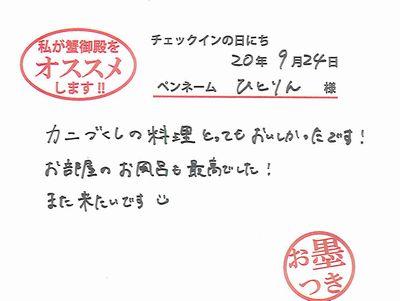 私が蟹御殿を
オススメ
します!!
チェックインの日にち
20年 9月24日
ペンネーム ひとりん 様
カニづくしの料理とってもおいしかったです！
お部屋のお風呂も最高でした！
また来たいです
お墨
つき